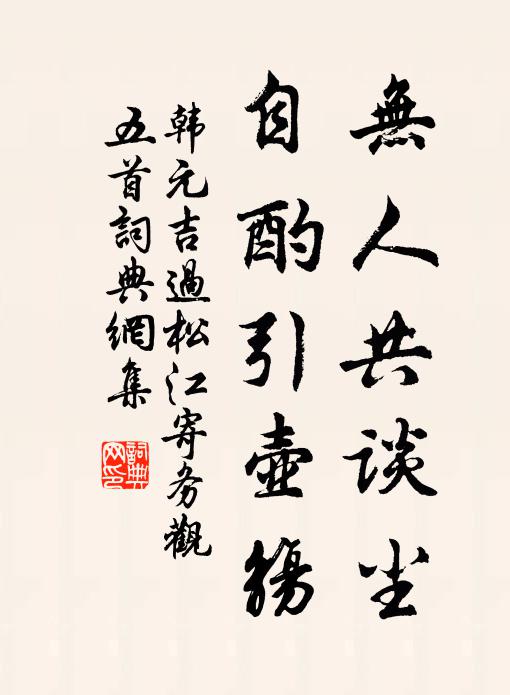 無人共談尘
自酌引壺觴
韩元吉過松江寄务觀
五首詞典網集
詞典网印